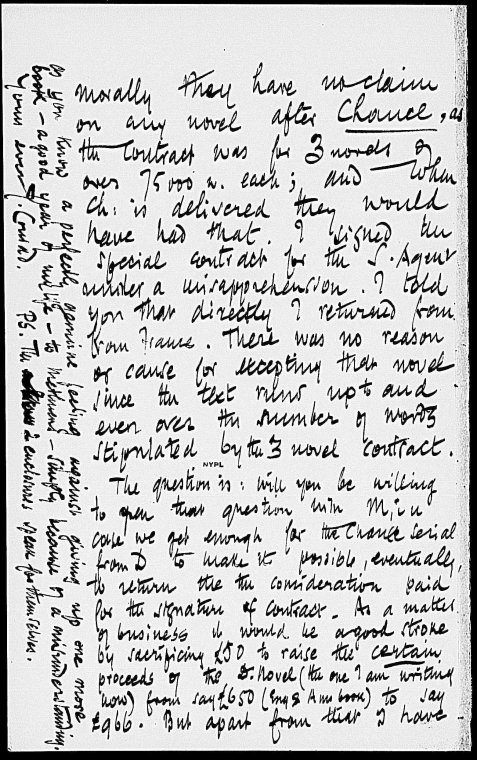 morally they have no claim
on any novel after Chance, as
the contract was for 3 novels of
over 75000 w. each; and when
Ch: is delivered they would
have had that. I signed the
special contract for the S. Agent
under a misapprehension. I told
you that directly I returned from
from France. There was no reason
or cause for excepting that novel
since the text runs up to and
even over the number of words
stipulated by the 3 novel contract.
NYPL
The question is: will you be willing
to open that question with M, in
case we get enough for the Chance serial
from D to make it possible, eventually,
to return the the consideration paid
for the signature of contract. As a matter
of business it would be a good stroke
by sacrificing £50 to raise the certain
proceeds of the S. Novel (the one I am writing
now) from say £650 (Eng & Am book) to say
£966. But apart from that I have
as you know a perfectly genuine feeling against giving up one more
book – a good year of my life – to Methuens – simply because of a misunderstanding.
Yours ever J. Conrad. PS. The enclosures speak for themselves.